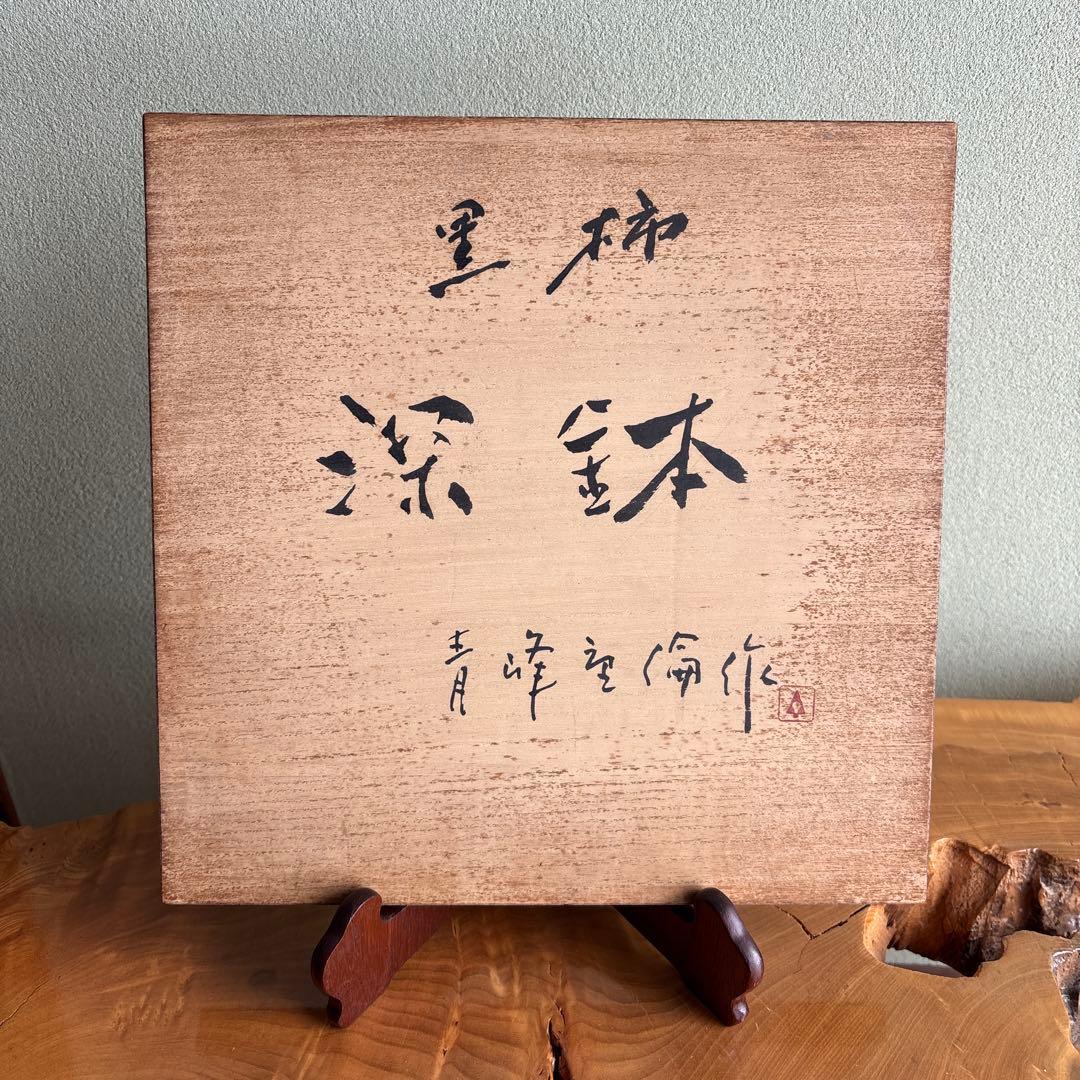 黒柿
深鉢
青峰重倫作